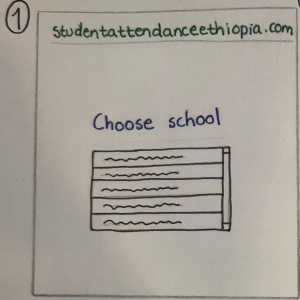 1
studentattendanceethiopia.com
Choose school